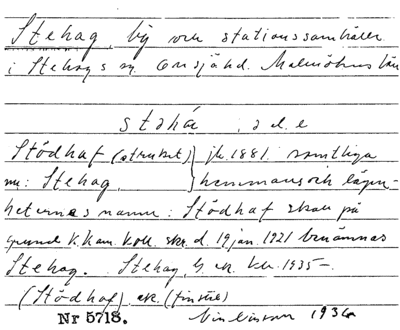 Stehag, by och stationssamhälle
i Stehags sn. Onsjö hd. Malmöhus län
stəhá
Stödhaf (struket) } jb. 1881. samtliga
nu: Stehag. } hemmans och lägen-
heternas namn: Stödhaf skall på
grund K. Kam. Koll. skr. d. 19 jan. 1921 benämnas
Stehag. Stehag, G. ek. kbl. 1935 –
(Stödhaf) ek.
Nr 5718. 1936